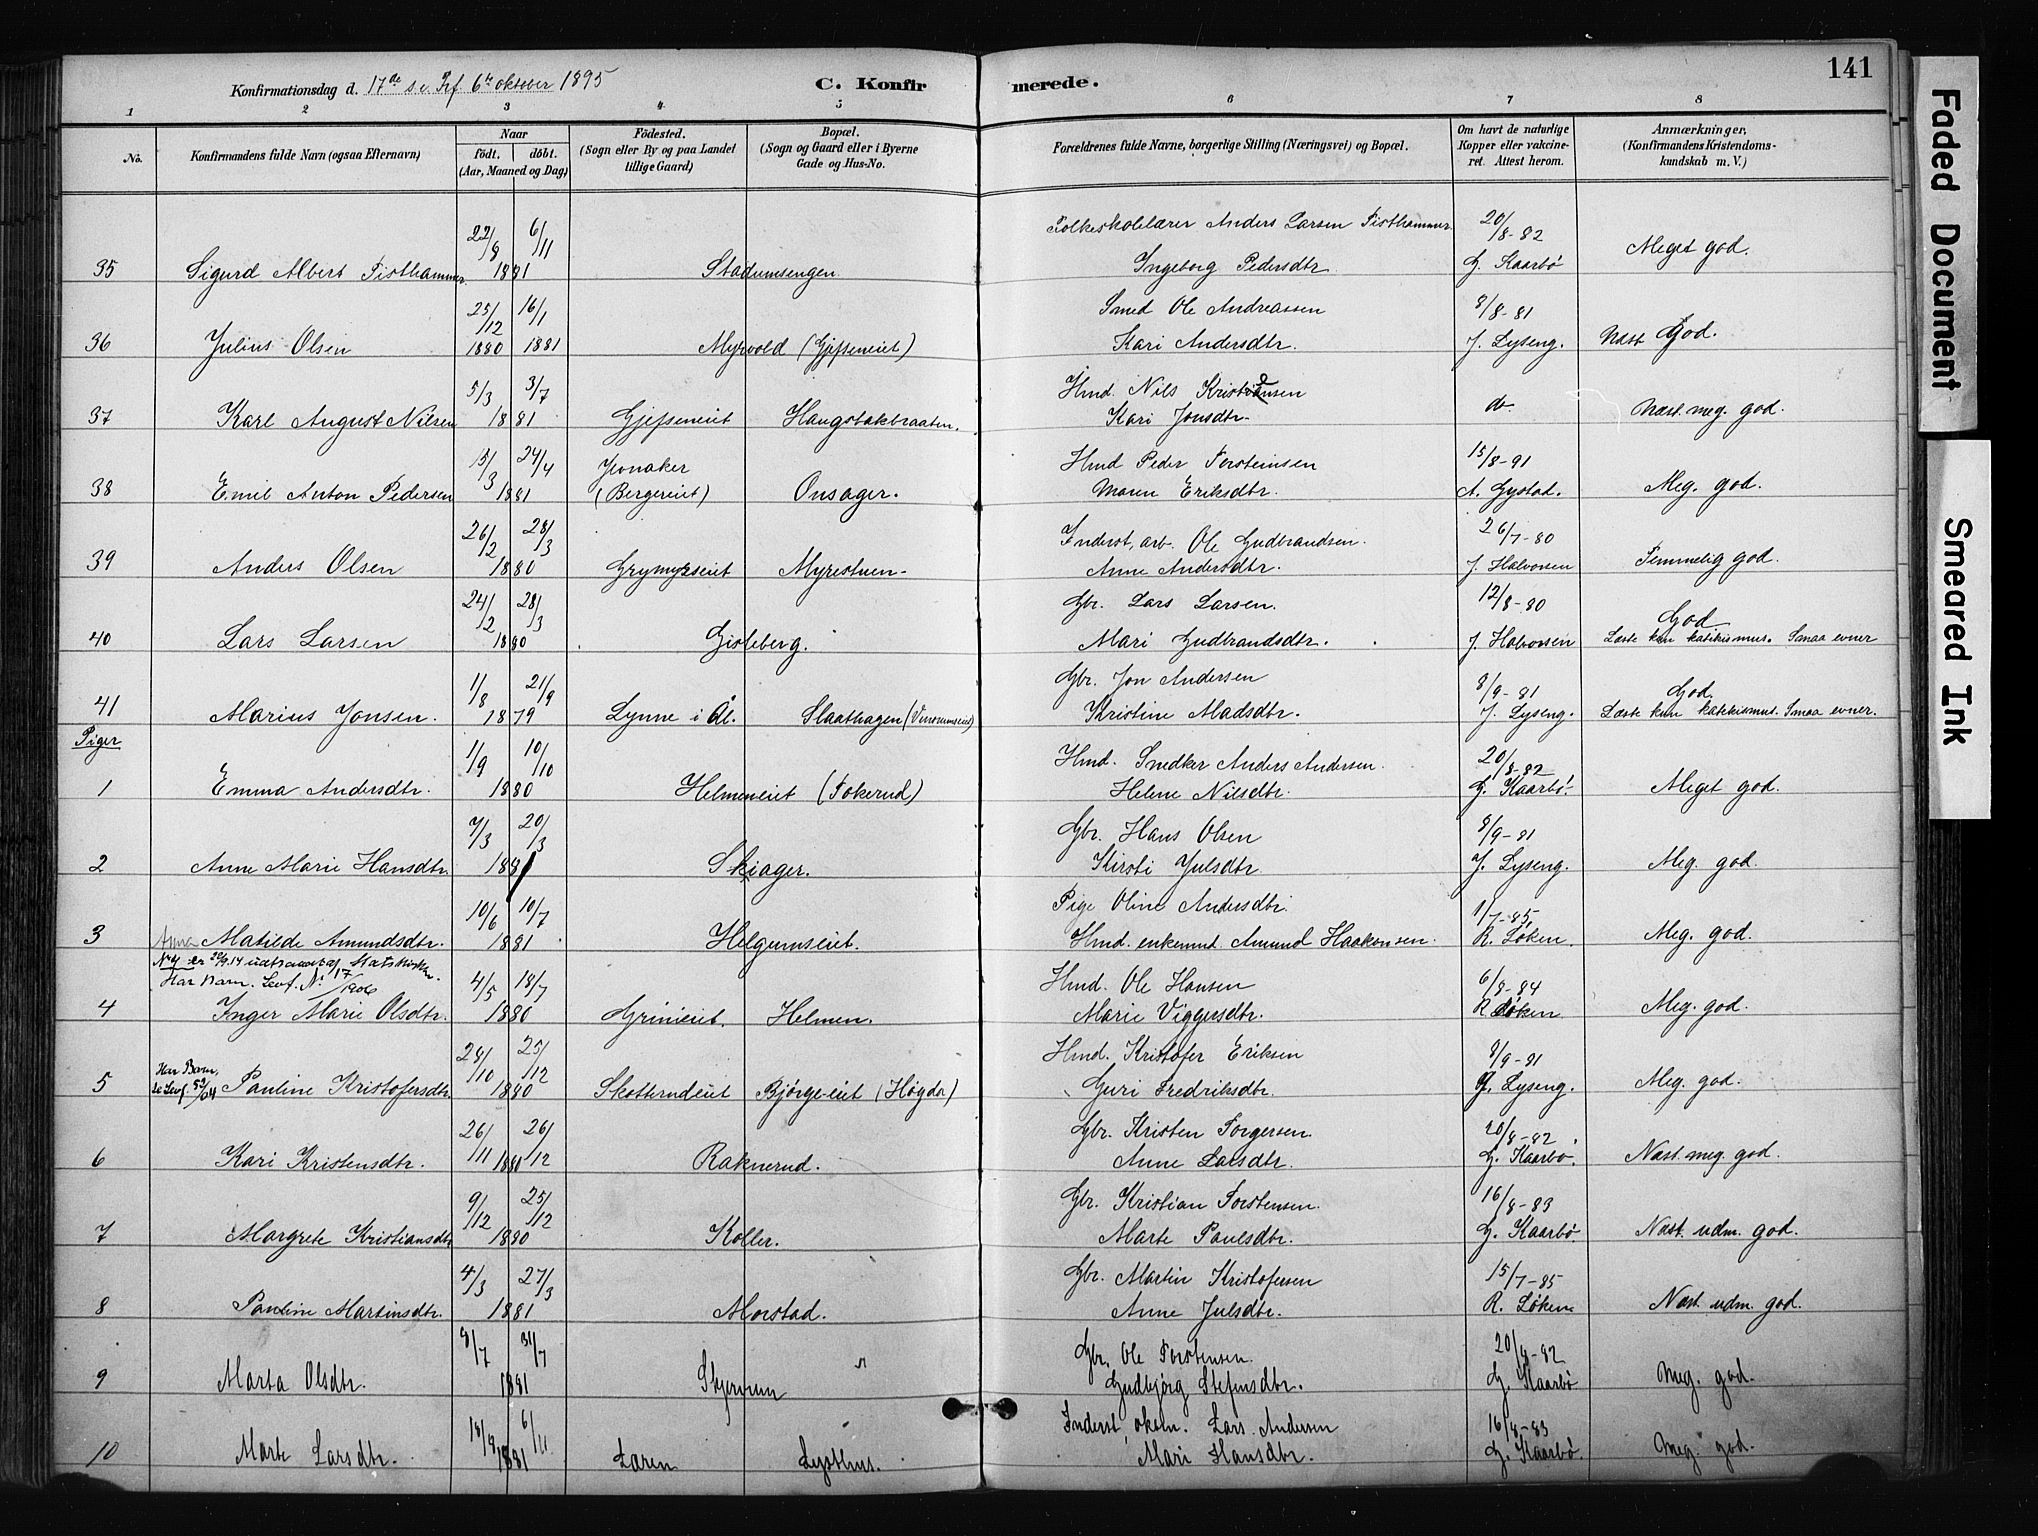 141
Konfirmationsdag d. 17de s. e. Trf. 6te oktober 1895
C. Konfirmerede.
1 2 3 4 5 6 7 8
No. Konfirmandens fulde Navn (ogsaa Efternavn)
Naar
födt. döbt.
(Aar, Maaned og Dag)
Födested.
(Sogn eller By og paa Landet tillige Gaard)
Bopæl.
(Sogn og Gaard eller i Byerne Gade og Hus-No.
Forældrenes fulde Navne, borgerlige Stilling (Næringsvei) og Bopæl.
Om havt de naturlige Kopper eller vaccineret. Attest herom.
Anmærkninger,
(Konfirmandens Kristendomskundskab m. V.)
22/8 6/11 Folkeskolelærer Anders Larsen Fisthammer 20/8-82
35 Sigurd Albert Fisthammer 1881 Stadumsengen Ingeborg Pedersdtr G. Kaarbö Meget god.
25/12 16/1 Smed Ole Andreassen 8/8-81
36 Julius Olsen 1880 1881 Myrvold (Gjefseneiet) Kari Andersdtr. J. Lyseng. Næst god.
5/3 3/7 Hmd. Nils Kristiansen
37 Karl August Nilsen 1881 Gjefseneiet Haugsbakbraaten. Kari Jonsdtr do. Næst meg. god.
15/3 24/4 Jevnaker Hmd Peder Torsteinsen 15/8-91
38 Emil Anton Pedersen 1881 (Bergereiet) Onsager. Maren Eriksdtr. A. Gystad. Meg. god.
26/2 28/3 Inderst, arb. Ole Gudbrandsen. 26/7-80
39 Anders Olsen 1880 Grymyrseiet Myrestuen Anne Andersdtr. J. Halvorsen Temmelig god.
24/2 28/3 Gbr. Lars Larsen. 12/8-80 God
40 Lars Larsen 1880 Gisleberg. Mari Gudbrandsdtr. J. Halvorsen Læste kun katekismus. Smaa evner
1/8 21/9 Gbr. Jon Andersen 8/9-81 God
41 Marius Jonsen. 1879 Lynne i Ål. Slaathagen (Vinorumseiet) Kristine Madsdtr. J. Lyseng. Læste kun katekismus. Smaa evner.
Piger
1/9 10/10 Hmd. Snedker Anders Andersen. 20/8-82
1 Emma Andersdtr. 1880 Helmeneiet (Tokerud) Helene Nilsdtr. G. Kaarbö. Meget god.
7/3 20/3 Gbr. Hans Olsen 8/9-81
2 Anne Marie Hansdtr. 1881 Skiager. Kirsti Julsdtr. J. Lyseng. Meg. god.
10/6 10/7 Pige Oline Andersdtr. 1/7-85
3 Anna Matilde Amundsdtr. 1881 Helgumseiet. Hmd. enkemnd. Amund Haakonsen. R. Löken. Meg. god.
No 4 er 20/9.14 udtraadt af Statskirken.
Har Barn. Levf. No 17/1906
4/5 18/7 Hmd. Ole Hansen 6/8-84
4 Inger Marie Olsdtr. 1880 Grinieiet. Helmen. Marie Viggersdtr. R Löken Meg. god.
Har Barn, se Levf.
28/10 25/12 Hmd. Kristofer Eriksen 8/9-81
5 Pauline Kristofersdtr. 1880 Skotterudeiet Bjørge-eiet (Høgda) Guri Fredriksdtr. J. Lyseng. Meg. god.
26/11 26/12 Gbr. Kristen Torgersen. 20/8-82
6 Kari Kristensdtr. 1880 Raknerud. Anne Larsdtr. G. Kaarbö. Næst meg. god.
9/12 25/12 Gbr. Kristian Torstensen. 16/8-83
7 Margrete Kristiansdtr 1880 Koller. Marte Paulsdtr. G. Kaarbö. Næst. udm. god.
4/3 27/3 Gbr. Martin Kristofersen 15/7-85
8 Pauline Martinsdtr. 1881 Morstad. Anne Julsdtr. R. Löken Næst. udm. god.
9/7 31/7 Gbr. Ole Torstensen. 20/8-82
9 Marta Olsdtr. 1881 Skjervum Gudbjörg Stefensdtr. G. Kaarbö Meg. god.
18/9 6/11 Inderst, Lars Andersen 16/8-83
10 Marte Larsdtr. 1881 Laren Lysthus. Mari Hansdtr. G. Kaarbö. Meg. god.
Faded Document
Smeared Ink